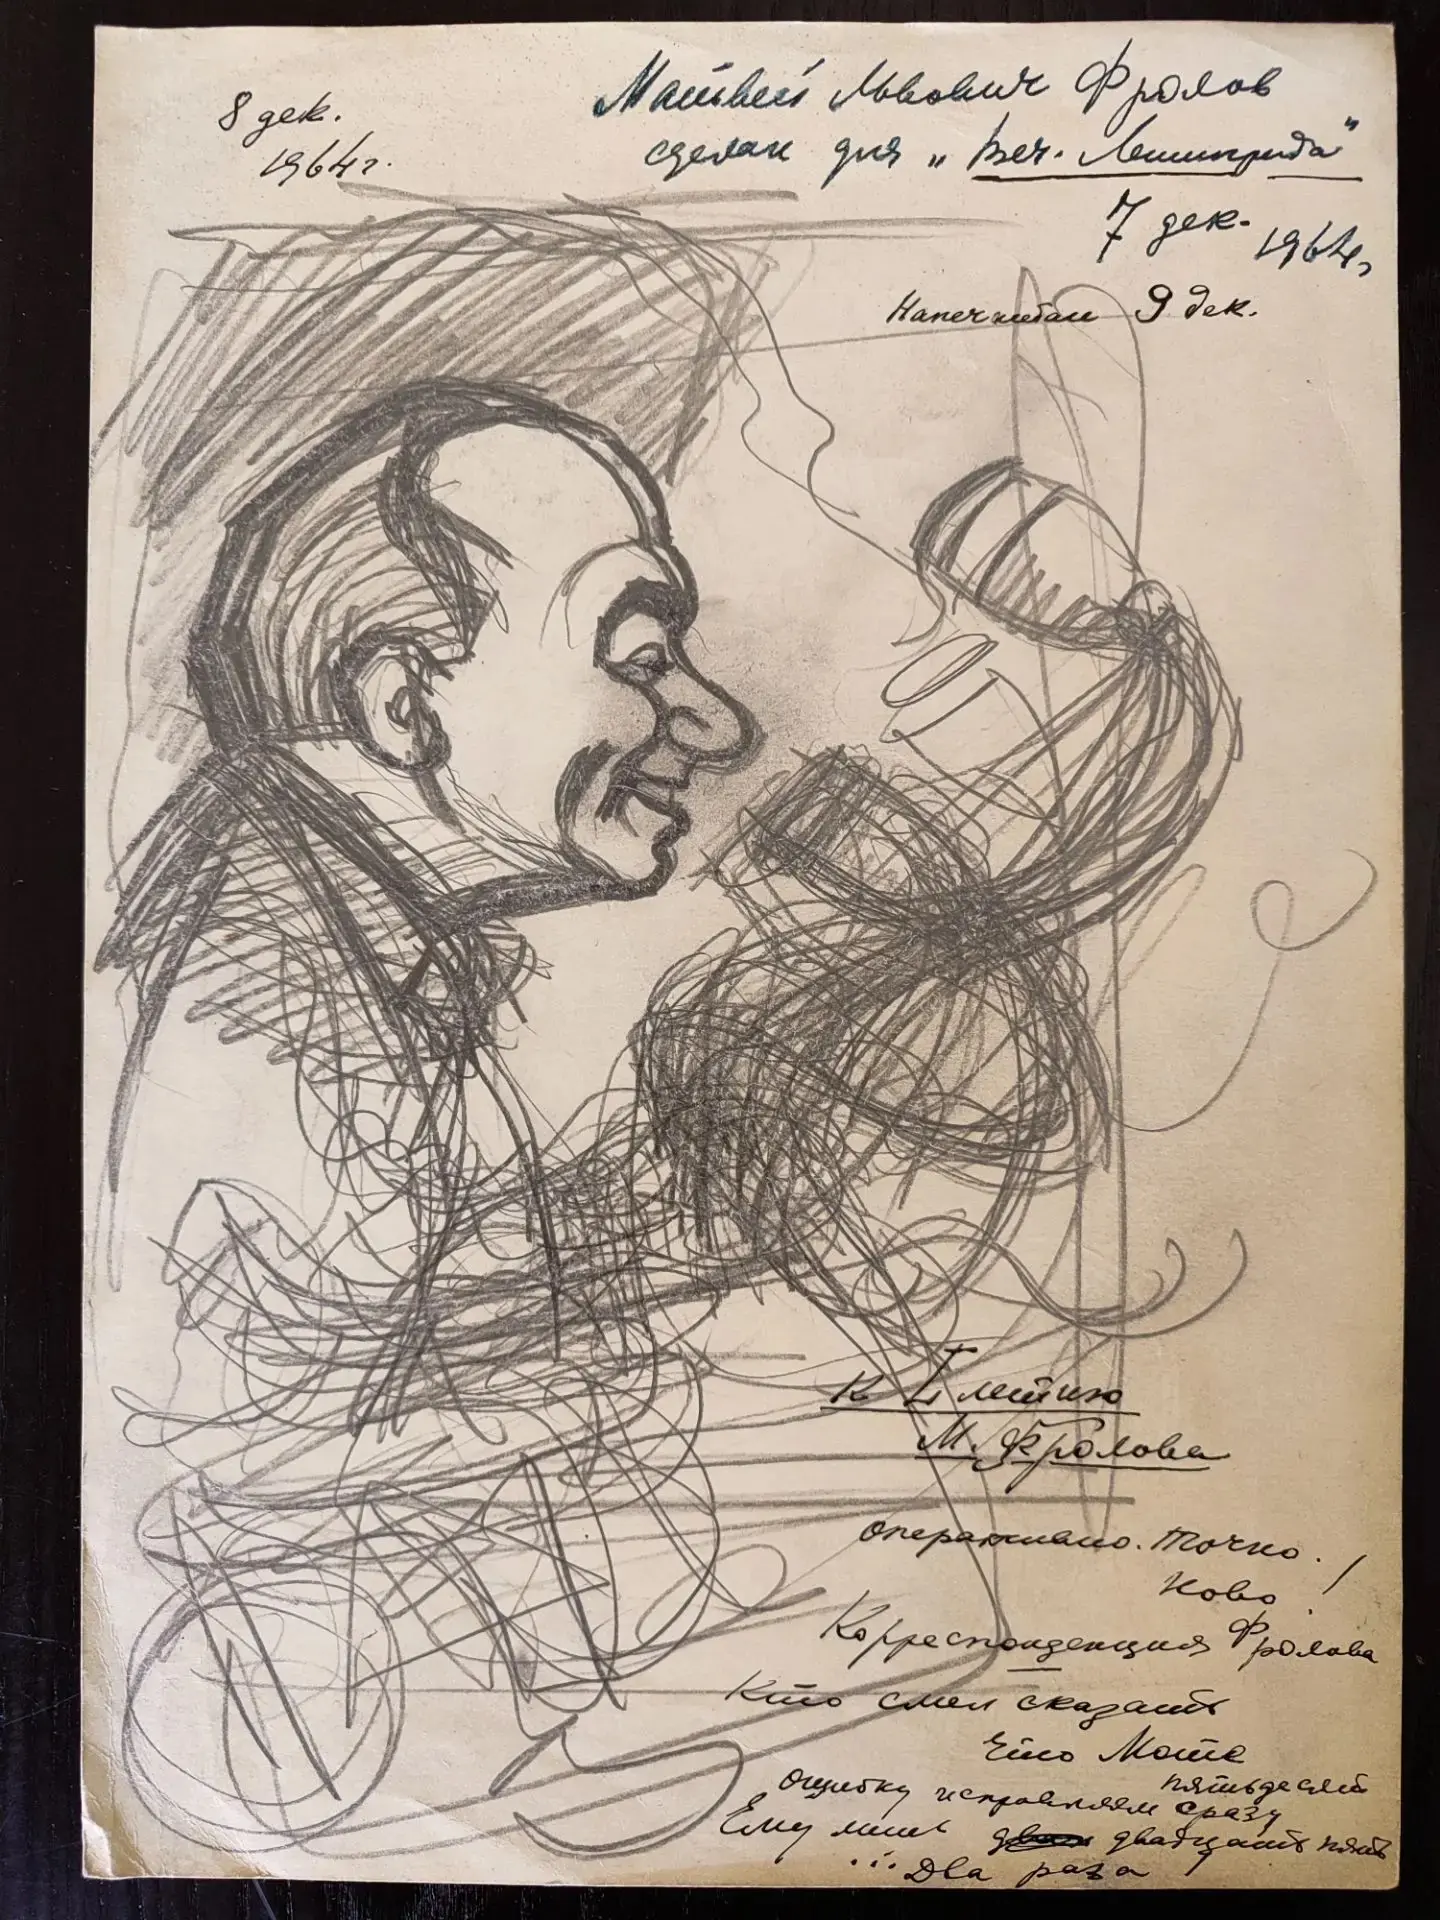 8 дек.
1964 г.
Матвей Львович Фролов
сделан для „Веч. Ленинграда"
7 дек. 1964 г.
Напечатан 9 дек.
К I летию
М. Фролова
Оперативно. Точно.
Ново!
Корреспонденция Фролова
Кто смел сказать
Что Моте пятьдесят
Ошибку исправляем сразу
Ему лишь двадцать пять
... Два раза